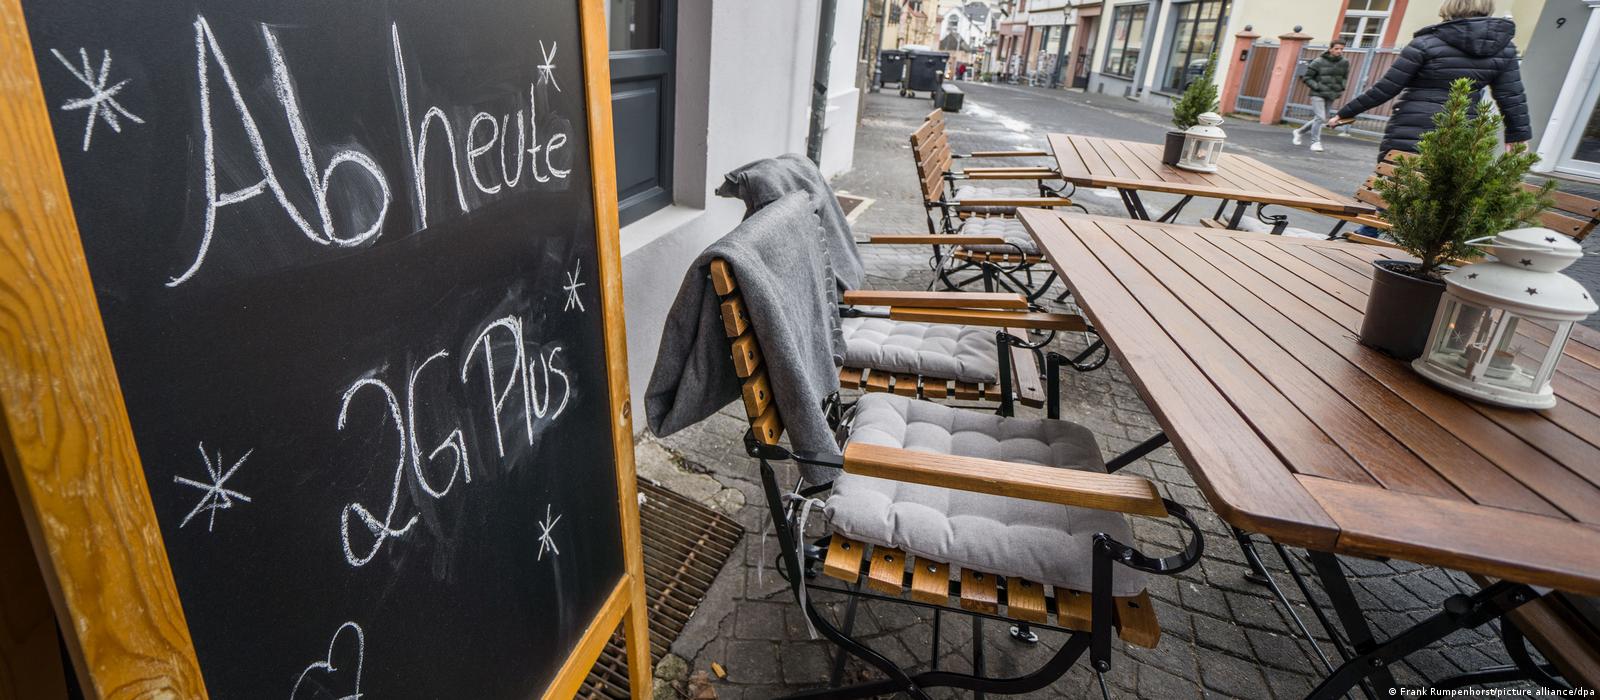 Ab heute
2G Plus
9
© Frank Rumpenhorst/picture alliance/dpa